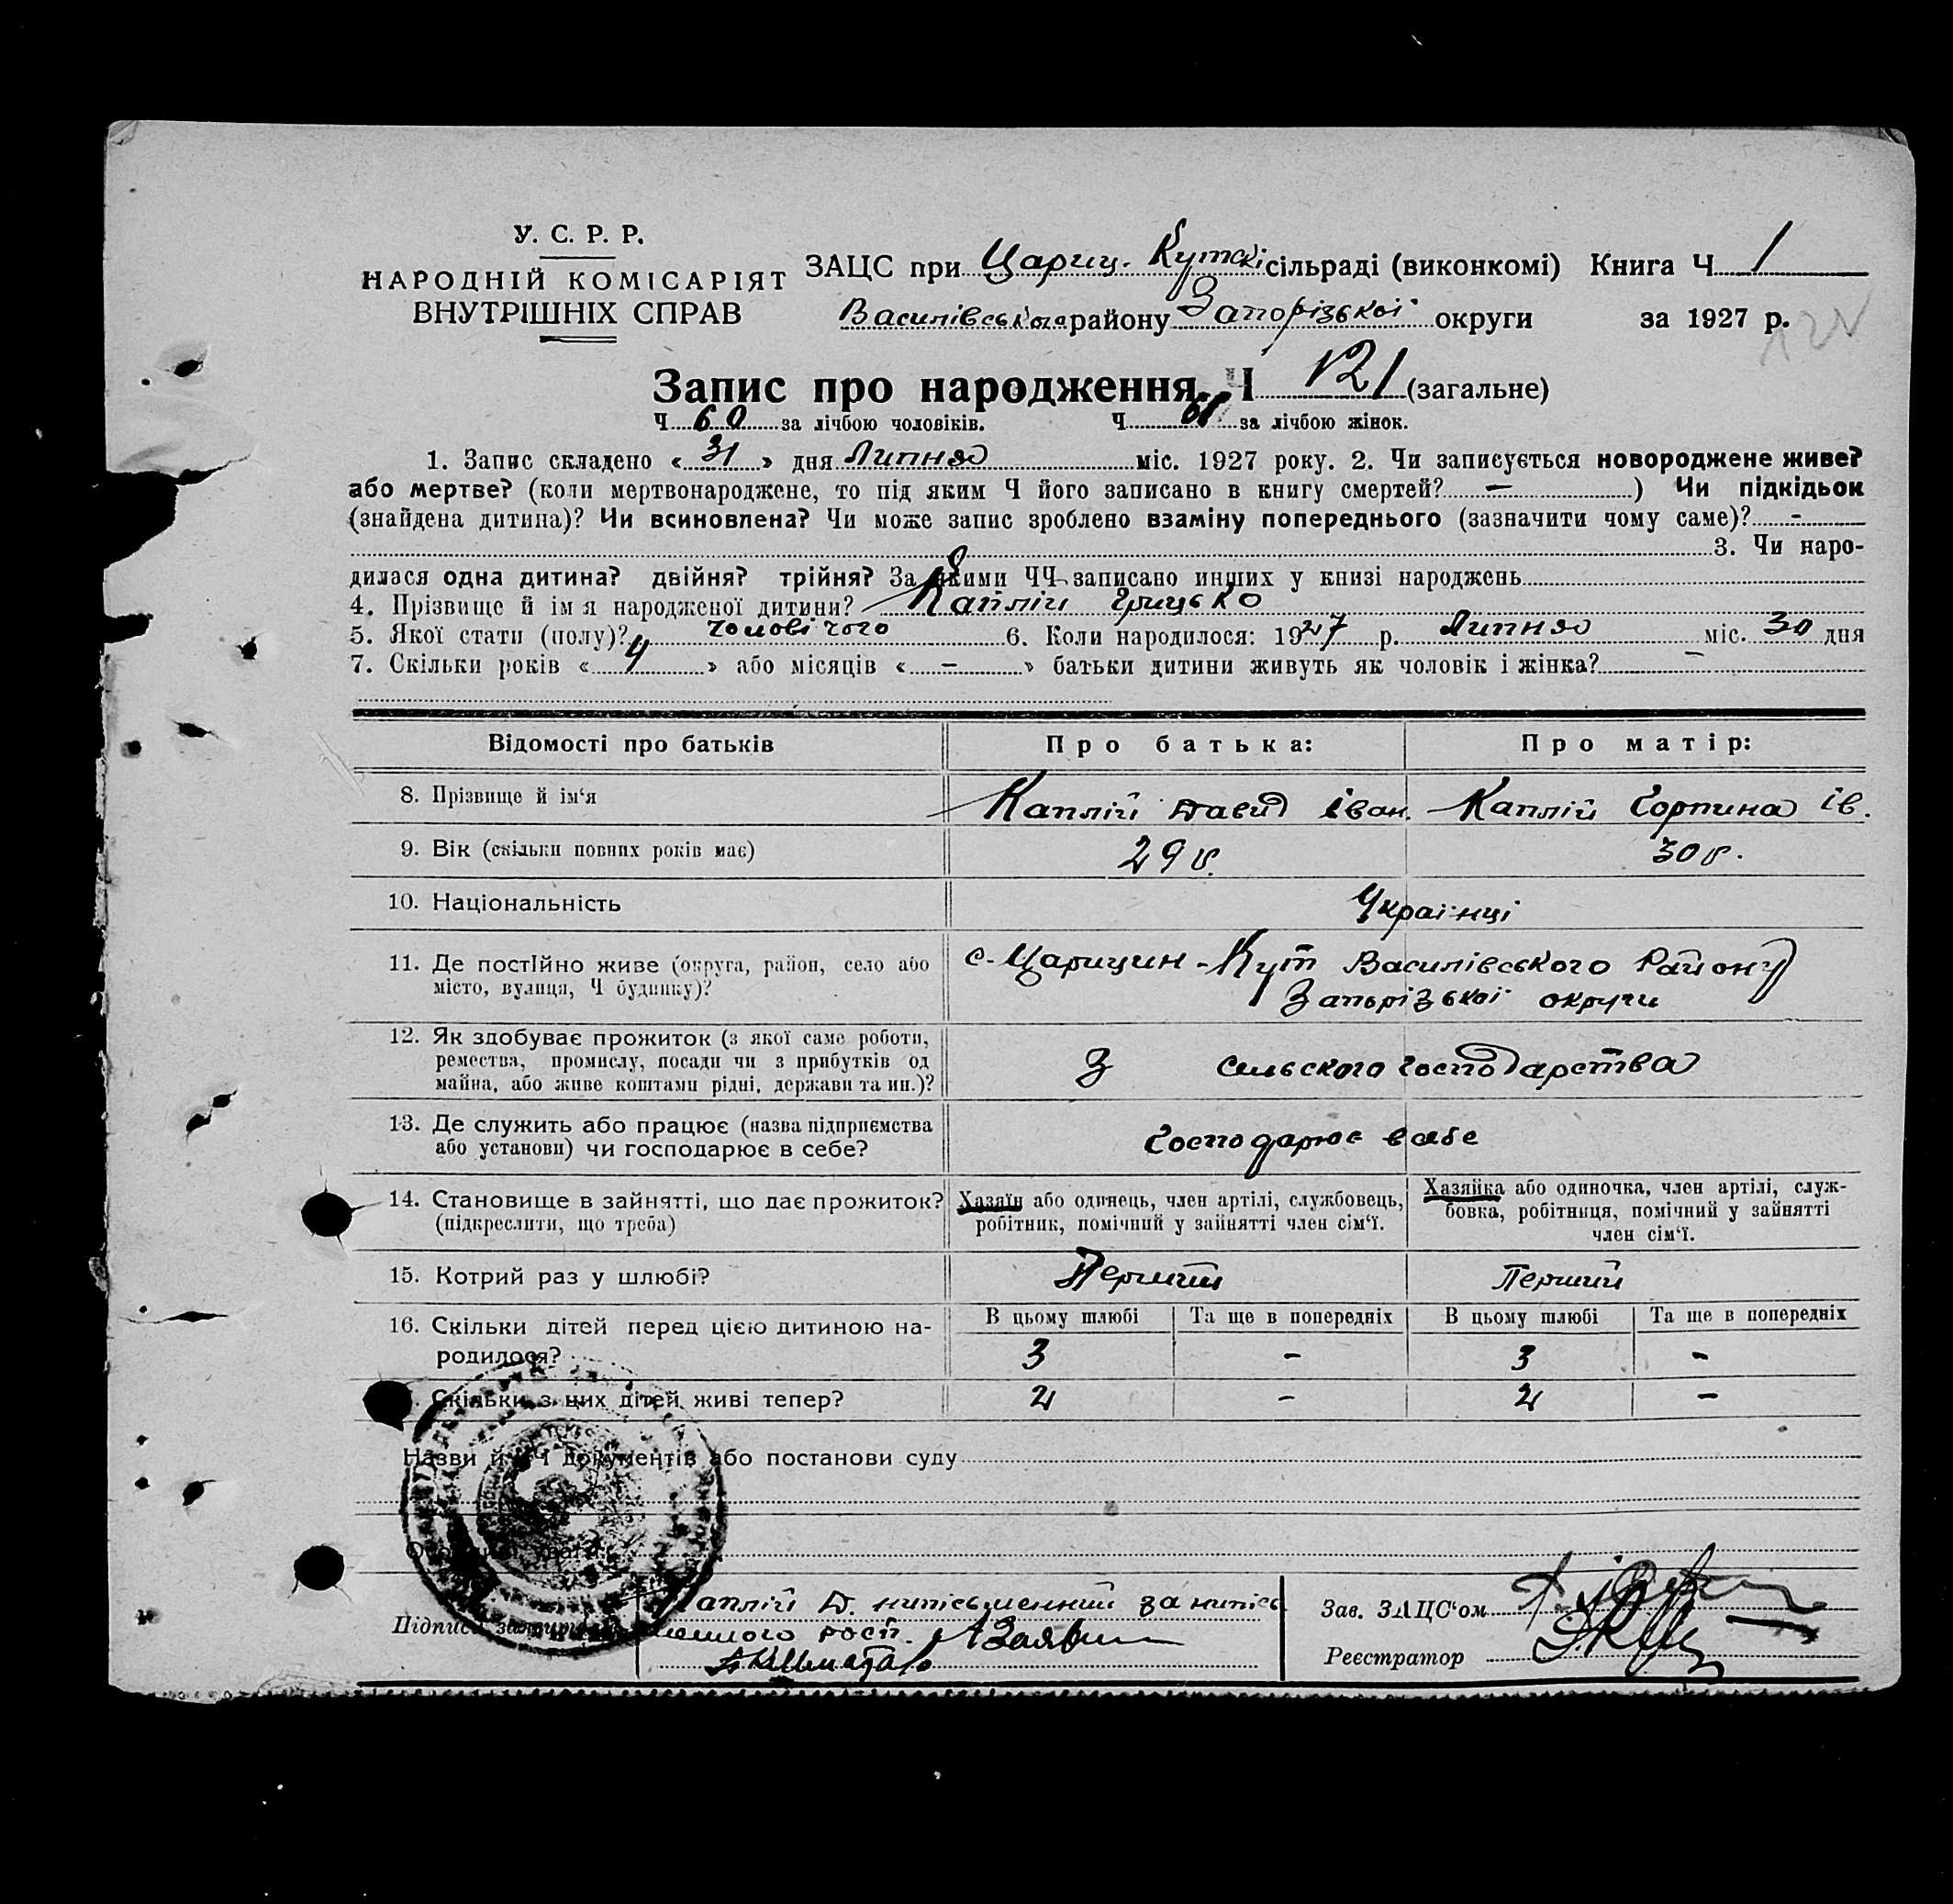 У. С. Р. Р.
НАРОДНІЙ КОМІСАРІЯТ
ВНУТРІШНІХ СПРАВ
ЗАЦС при Цариц.-Кутскі сільраді (виконкомі) Книга Ч 1
Василівського району Запорізької округи за 1927 р.
Запис про народження. Ч 121 (загальне)
Ч 60 за лічбою чоловіків. Ч 61 за лічбою жінок.
1. Запис складено « 31 » дня Липня міс. 1927 року. 2. Чи записується новороджене живе?
або мертве? (коли мертвонароджене, то під яким Ч його записано в книгу смертей? — ) Чи підкідьок
(знайдена дитина)? Чи всиновлена? Чи може запис зроблено взаміну попереднього (зазначити чому саме)? -
3. Чи наро-
дилася одна дитина? двійня? трійня? За якими ЧЧ записано инших у книзі народжень
4. Прізвище й ім'я народженої дитини? Каплій Грицько
5. Якої стати (полу)? чоловічого 6. Коли народилося: 1927 р. Липня міс. 30 дня
7. Скільки років « 4 » або місяців « – » батьки дитини живуть як чоловік і жінка? –
Відомості про батьків Про батька: Про матір:
8. Прізвище й ім'я Каплій Давид Іван. Каплій Горпина Ів.
9. Вік (скільки повних років має) 29 р. 30 р.
10. Національність Українці
11. Де постійно живе (округа, район, село або
місто, вулиця, Ч будинку)?
с. Царицин-Кут Василівського Району
Запорізької округи
12. Як здобуває прожиток (з якої саме роботи,
ремества, промислу, посади чи з прибутків од
майна, або живе коштами рідні, держави та ин.)?
З сельского господарства
13. Де служить або працює (назва підприємства
або установи) чи господарює в себе?
Господарює в себе
14. Становище в зайнятті, що дає прожиток?
(підкреслити, що треба)
Хазяїн або одинець, член артілі, службовець,
робітник, помічний у зайнятті член сім'ї.
Хазяйка або одиночка, член артілі, служ-
бовка, робітниця, помічний у зайнятті
член сім'ї.
15. Котрий раз у шлюбі? Перший Перший
16. Скільки дітей перед цією дитиною на-
родилося?
В цьому шлюбі Та ще в попередніх В цьому шлюбі Та ще в попередніх
3 - 3 -
Скільки з них дітей живі тепер? 2 - 2 -
Назви й ЧЧ документів або постанови суду
Каплій Д. нипісьменний за нипісь
менного росп.
Підписи
Зав. ЗАЦС'ом
Реєстратор